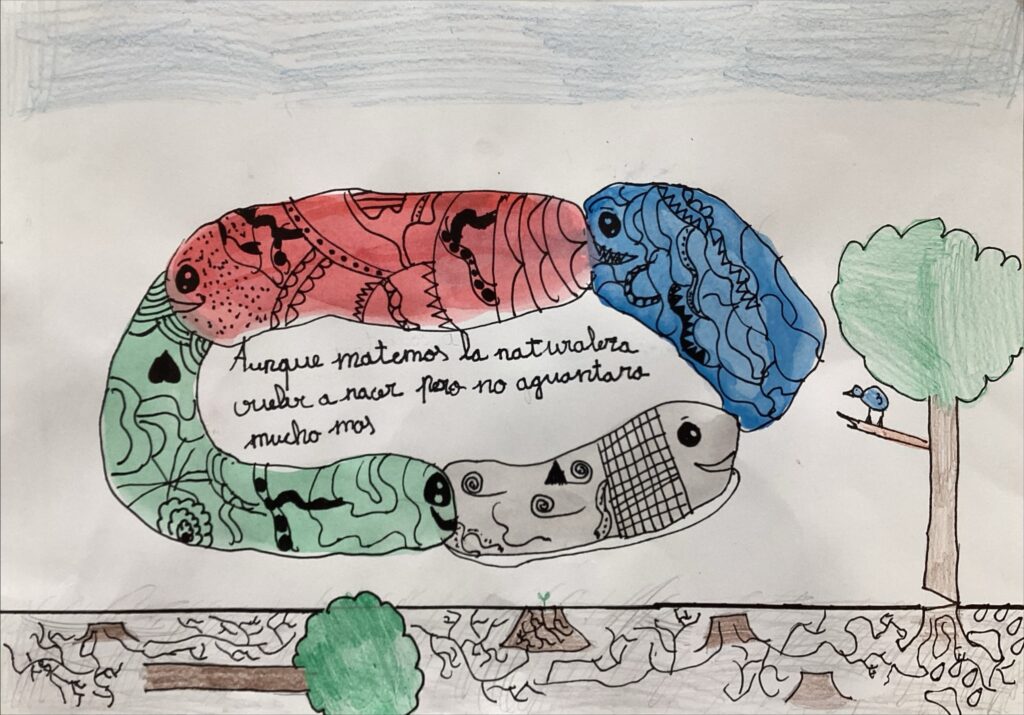 Aunque matemos la naturaleza
vuelve a nacer pero no aguantara
mucho mas